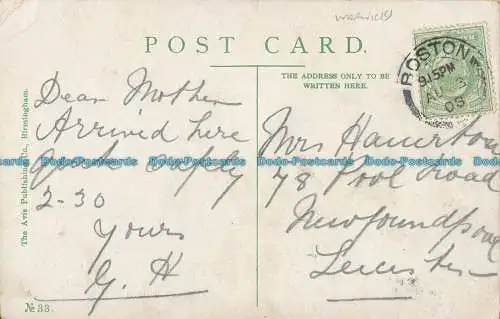 warwick
POST CARD.
THE ADDRESS ONLY TO BE
WRITTEN HERE.
BOSTON
9.15PM
AU 2
09
The Avis Publishing Co., Birmingham.
Dear Mother
Arrived here
quite safely
2-30
Yours
G. H
Mrs Hamerton
78 Pool Road
Newfoundpool
Leicester
No 33.
Dodo-Postcards Dodo-Postcards Dodo-Postcards Dodo-Postcards Dodo-Postcards Dodo-Postcards